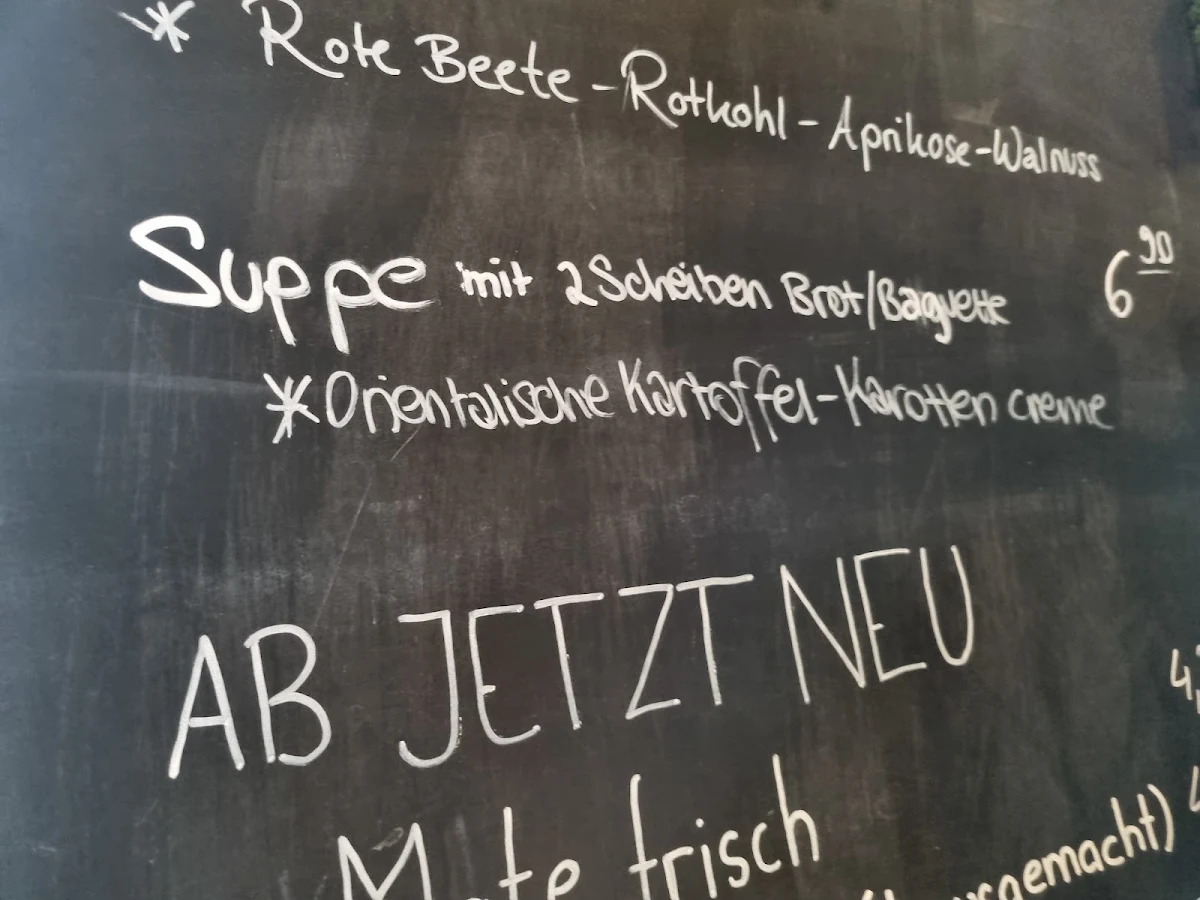 * Rote Beete - Rotkohl - Aprikose-Walnuss
Suppe mit 2 Scheiben Brot/Baguette 6 90
* Orientalische Kartoffel-Karotten creme
AB JETZT NEU
Mate frisch